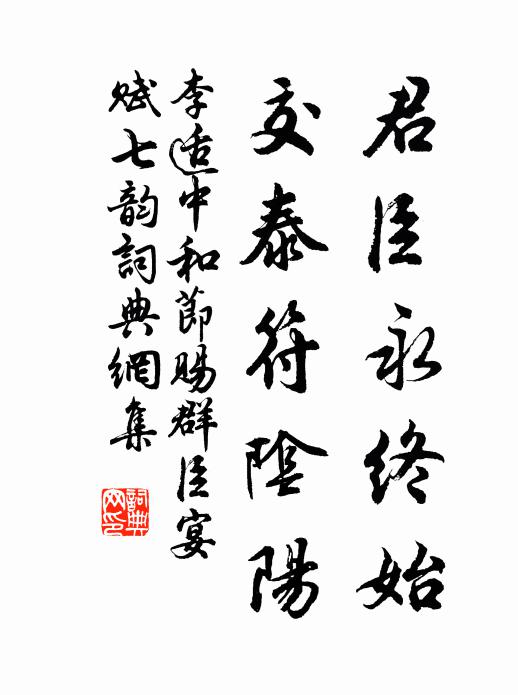 君臣永終始
交泰符陰陽
李适中和節賜群臣宴
賦七韵詞典網集
詞典网印